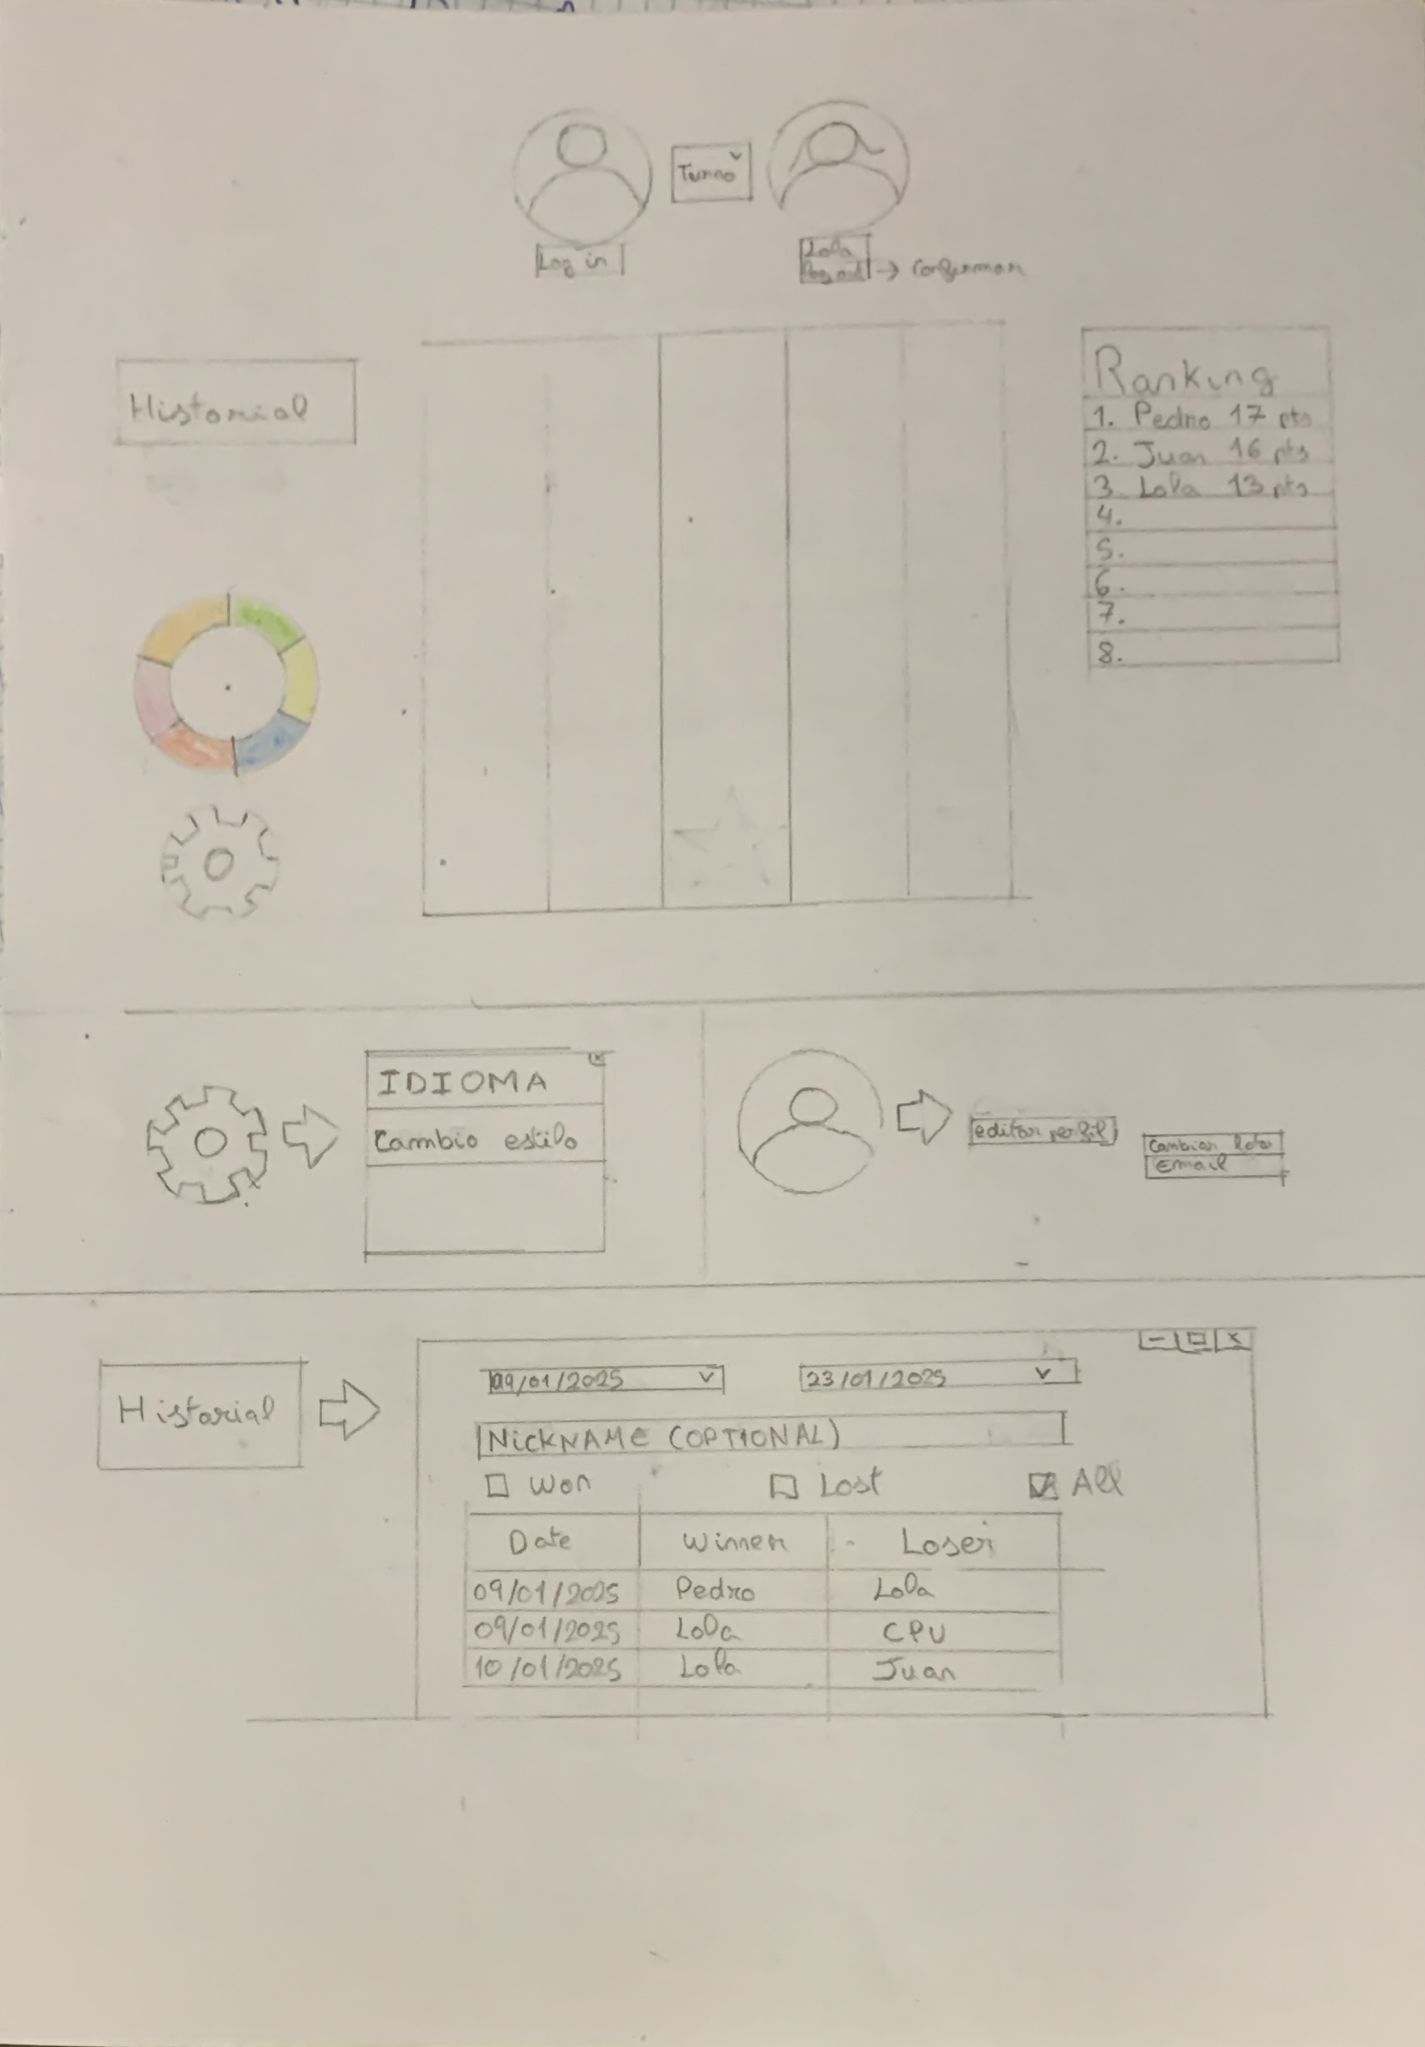 Turno
Log in
Lola
Log out → confirmar
Historial
Ranking
1. Pedro 17 pts
2. Juan 16 pts
3. Lola 13 pts
4.
5.
6.
7.
8.
IDIOMA
Cambio estilo
editar perfil
Cambiar foto
Email
Historial
09/01/2025
23/01/2025
NICKNAME (OPTIONAL)
Won Lost All
Date Winner Loser
09/01/2025 Pedro Lola
09/01/2025 Lola CPU
10/01/2025 Lola Juan